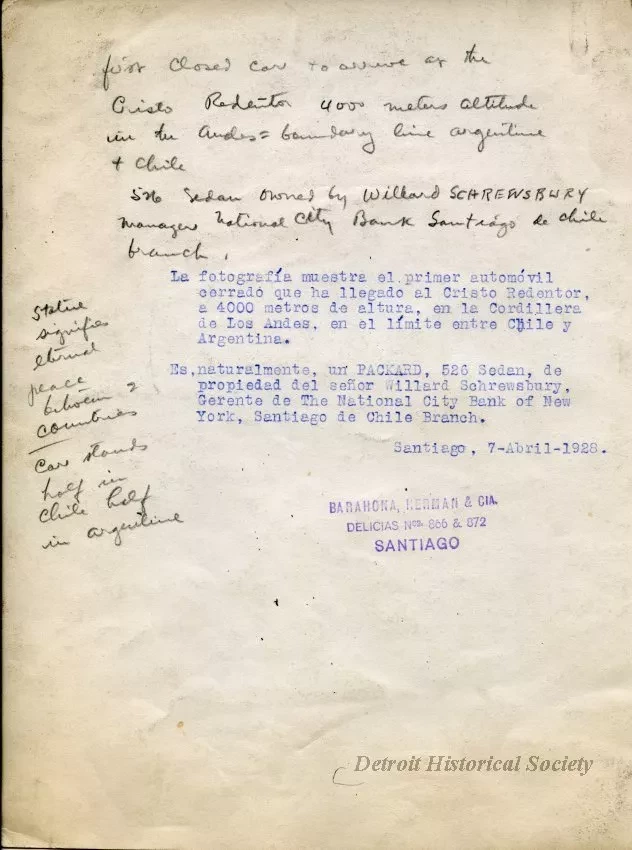 first closed car to arrive at the
Cristo Redentor 4000 meters altitude
in the Andes = boundary line argentine
+ Chile
526 Sedan owned by Willard SCHREWSBURY
manager National City Bank Santiago de Chile
branch.
La fotografía muestra el primer automóvil
cerrado que ha llegado al Cristo Redentor,
a 4000 metros de altura, en la Cordillera
de Los Andes, en el límite entre Chile y
Argentina.
Es, naturalmente, un PACKARD, 526 Sedan, de
propiedad del señor Willard Schrewsbury,
Gerente de The National City Bank of New
York, Santiago de Chile Branch.
Santiago, 7-Abril-1928.
Statue
signifies
eternal
peace
between 2
countries
Car stands
half in
Chile half
in argentine
BARAHONA, HERMAN & CIA.
DELICIAS Nos. 866 & 872
SANTIAGO
Detroit Historical Society